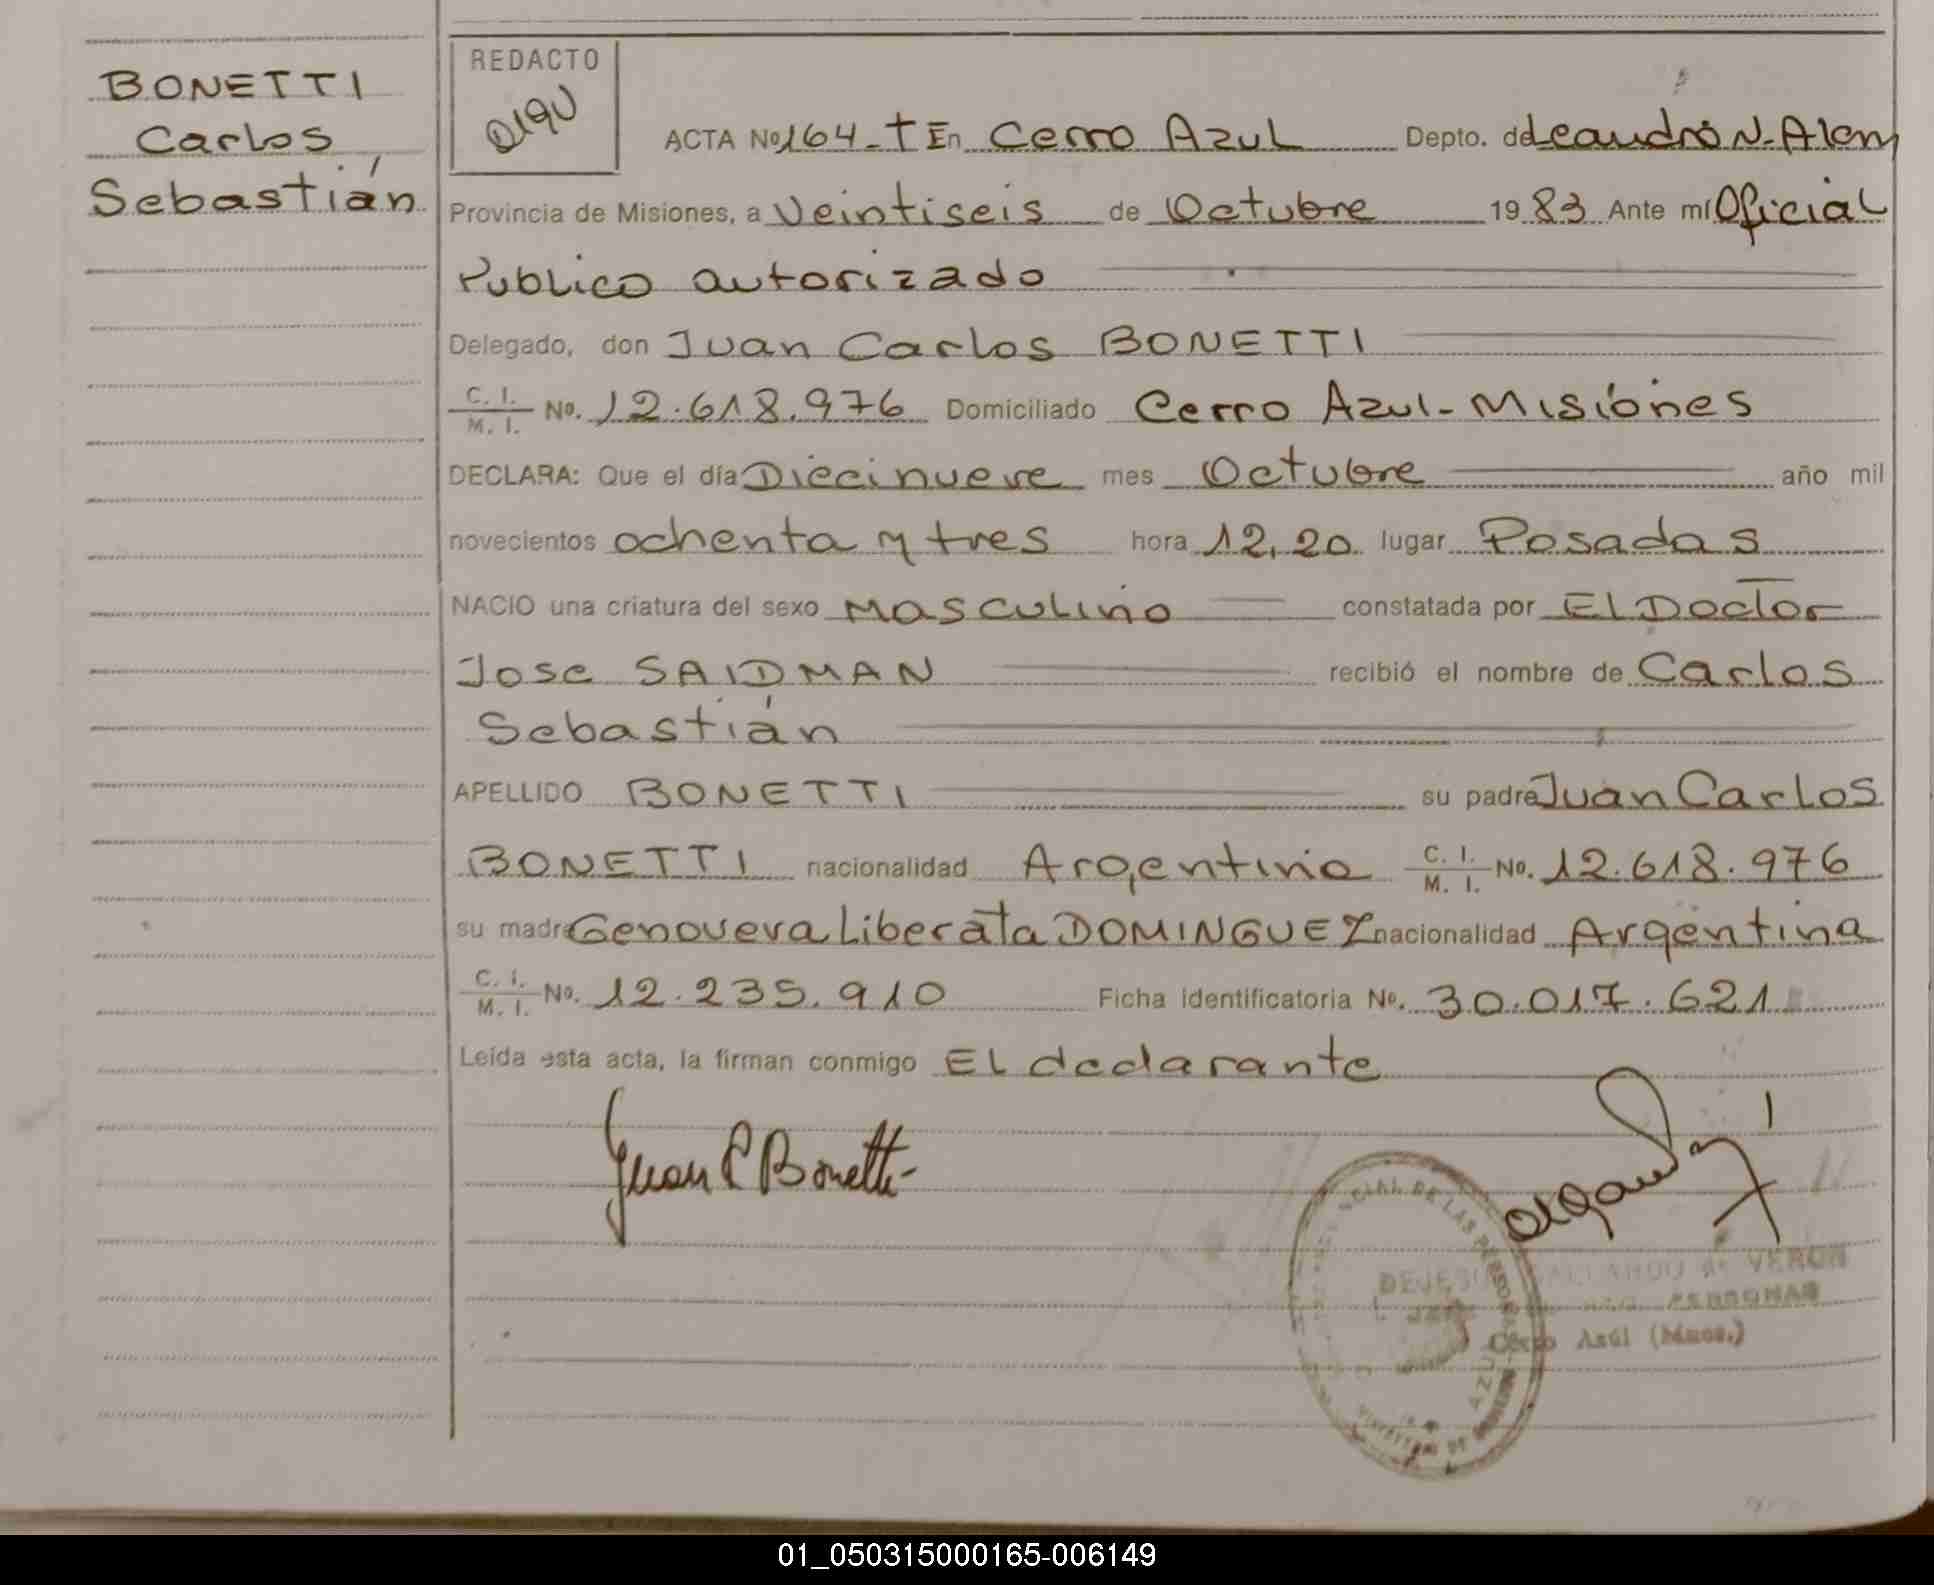 BONETTI
Carlos
Sebastián
REDACTO
ACTA Nº 164-T En Cerro Azul Depto. de Leandro N. Alem
Provincia de Misiones, a Veintiseis de Octubre 1983 Ante mí Oficial
Publico autorizado
Delegado, don Juan Carlos BONETTI
C. I. / M. I. No. 12.618.976 Domiciliado Cerro Azul - Misiones
DECLARA: Que el día Diecinueve mes Octubre año mil
novecientos ochenta y tres hora 12,20 lugar Posadas
NACIO una criatura del sexo Masculino constatada por El Doctor
Jose SAIDMAN recibió el nombre de Carlos
Sebastián
APELLIDO BONETTI su padre Juan Carlos
BONETTI nacionalidad Argentina C. I. / M. I. No. 12.618.976
su madre Genoveva Liberata DOMINGUEZ nacionalidad Argentina
C. I. / M. I. No. 12.235.910 Ficha identificatoria No. 30.017.621
Leída esta acta, la firman conmigo El declarante
Juan C Bonetti
DE LAS
VERON
PERSONAS
Cerro Azúl (Mnes.)
01_050315000165-006149